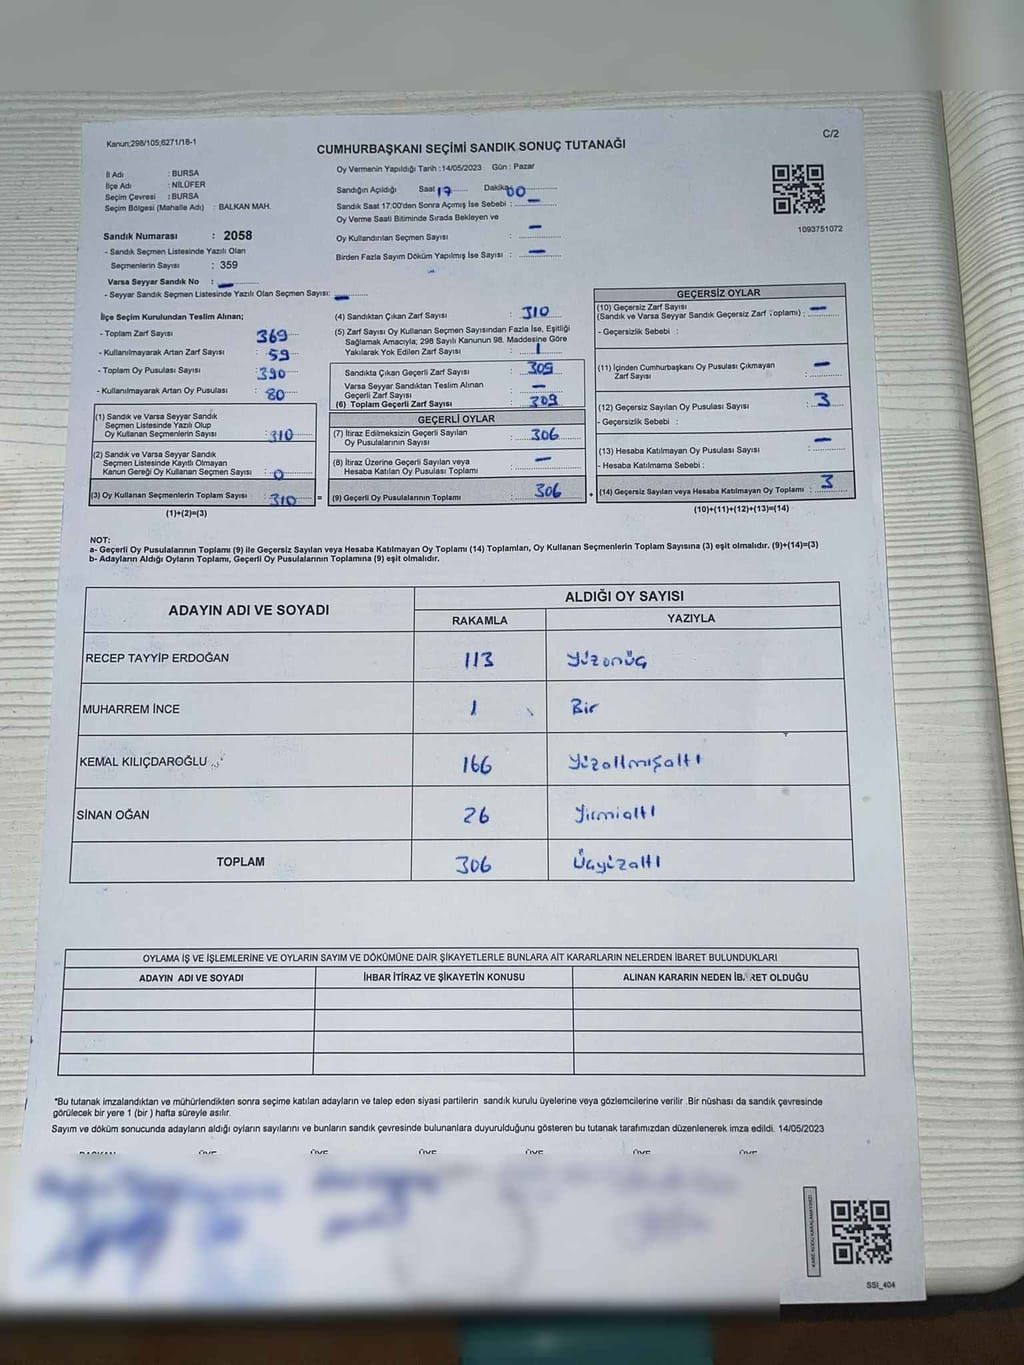 Kanun;298/105;6271/18-1
C/2
CUMHURBAŞKANI SEÇİMİ SANDIK SONUÇ TUTANAĞI
İl Adı : BURSA
İlçe Adı : NİLÜFER
Seçim Çevresi : BURSA
Seçim Bölgesi (Mahalle Adı) : BALKAN MAH.
Sandık Numarası : 2058
- Sandık Seçmen Listesinde Yazılı Olan
Seçmenlerin Sayısı : 359
Varsa Seyyar Sandık No : —
- Seyyar Sandık Seçmen Listesinde Yazılı Olan Seçmen Sayısı: —
Oy Vermenin Yapıldığı Tarih :14/05/2023 Gün : Pazar
Sandığın Açıldığı Saat 17 Dakika 00
Sandık Saat 17:00'den Sonra Açımış İse Sebebi : —
Oy Verme Saati Bitiminde Sırada Bekleyen ve
Oy Kullandırılan Seçmen Sayısı : —
Birden Fazla Sayım Döküm Yapılmış İse Sayısı : —
1093751072
İlçe Seçim Kurulundan Teslim Alınan;
- Toplam Zarf Sayısı : 369
- Kullanılmayarak Artan Zarf Sayısı : 59
- Toplam Oy Pusulası Sayısı : 390
- Kullanılmayarak Artan Oy Pusulası : 80
(1) Sandık ve Varsa Seyyar Sandık
Seçmen Listesinde Yazılı Olup
Oy Kullanan Seçmenlerin Sayısı : 310
(2) Sandık ve Varsa Seyyar Sandık
Seçmen Listesinde Kayıtlı Olmayan
Kanun Gereği Oy Kullanan Seçmen Sayısı : 0
(3) Oy Kullanan Seçmenlerin Toplam Sayısı : 310 =
(1)+(2)=(3)
(4) Sandıktan Çıkan Zarf Sayısı : 310
(5) Zarf Sayısı Oy Kullanan Seçmen Sayısından Fazla İse, Eşitliği
Sağlamak Amacıyla; 298 Sayılı Kanunun 98. Maddesine Göre
Yakılarak Yok Edilen Zarf Sayısı : 1
Sandıkta Çıkan Geçerli Zarf Sayısı : 309
Varsa Seyyar Sandıktan Teslim Alınan
Geçerli Zarf Sayısı : —
(6) Toplam Geçerli Zarf Sayısı : 309
GEÇERLİ OYLAR
(7) İtiraz Edilmeksizin Geçerli Sayılan
Oy Pusulalarının Sayısı : 306
(8) İtiraz Üzerine Geçerli Sayılan veya
Hesaba Katılan Oy Pusulası Toplamı : —
(9) Geçerli Oy Pusulalarının Toplamı : 306 +
GEÇERSİZ OYLAR
(10) Geçersiz Zarf Sayısı
(Sandık ve Varsa Seyyar Sandık Geçersiz Zarf Toplamı) : —
- Geçersizlik Sebebi :
(11) İçinden Cumhurbaşkanı Oy Pusulası Çıkmayan
Zarf Sayısı : —
(12) Geçersiz Sayılan Oy Pusulası Sayısı : 3
- Geçersizlik Sebebi :
(13) Hesaba Katılmayan Oy Pusulası Sayısı : —
- Hesaba Katılmama Sebebi :
(14) Geçersiz Sayılan veya Hesaba Katılmayan Oy Toplamı : 3
(10)+(11)+(12)+(13)=(14)
NOT:
a- Geçerli Oy Pusulalarının Toplamı (9) ile Geçersiz Sayılan veya Hesaba Katılmayan Oy Toplamı (14) Toplamları, Oy Kullanan Seçmenlerin Toplam Sayısına (3) eşit olmalıdır. (9)+(14)=(3)
b- Adayların Aldığı Oyların Toplamı, Geçerli Oy Pusulalarının Toplamına (9) eşit olmalıdır.
ADAYIN ADI VE SOYADI
ALDIĞI OY SAYISI
RAKAMLA YAZIYLA
RECEP TAYYİP ERDOĞAN 113 Yüzonüç
MUHARREM İNCE 1 Bir
KEMAL KILIÇDAROĞLU 166 Yüzaltmışaltı
SİNAN OĞAN 26 Yirmialtı
TOPLAM 306 Üçyüzaltı
OYLAMA İŞ VE İŞLEMLERİNE VE OYLARIN SAYIM VE DÖKÜMÜNE DAİR ŞİKAYETLERLE BUNLARA AİT KARARLARIN NELERDEN İBARET BULUNDUKLARI
ADAYIN ADI VE SOYADI İHBAR İTİRAZ VE ŞİKAYETİN KONUSU ALINAN KARARIN NEDEN İBARET OLDUĞU
*Bu tutanak imzalandıktan ve mühürlendikten sonra seçime katılan adayların ve talep eden siyasi partilerin sandık kurulu üyelerine veya gözlemcilerine verilir .Bir nüshası da sandık çevresinde
görülecek bir yere 1 (bir ) hafta süreyle asılır.
Sayım ve döküm sonucunda adayların aldığı oyların sayılarını ve bunların sandık çevresinde bulunanlara duyurulduğunu gösteren bu tutanak tarafımızdan düzenlenerek imza edildi. 14/05/2023
SSI_404